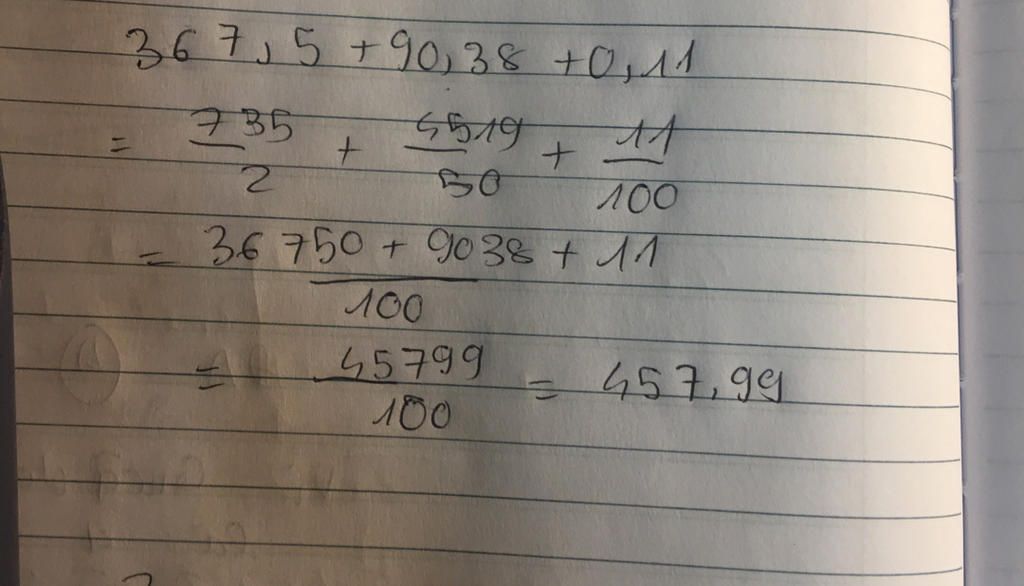 367,5 + 90,38 + 0,11
= 735/2 + 4519/50 + 11/100
= 36750 + 9038 + 11/100
= 45799/100 = 457,99